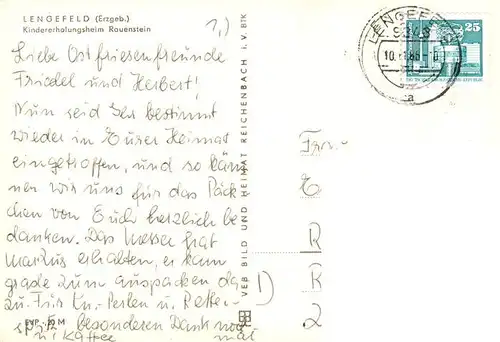 LENGEFELD (Erzgeb.)
Kindererholungsheim Rauenstein
1.)
Liebe Ostfriesenfreunde
Friedel und Herbert!
Nun seid Ihr bestimmt
wieder in Eurer Heimat
eingetroffen, und so kön
nen wir uns für das Päck
chen von Euch herzlich be
danken. Das Messer hat
Markus erhalten, er kam
grade zum auspacken da
zu. Für Kn.-Perlen u. Retter-
spitz besonderen Dank noch
u. Kaffee mals
EVP -,20 M
VEB BILD UND HEIMAT REICHENBACH I. V. BTK
LENGEFELD
25
Frr.-
E
R
D K
2